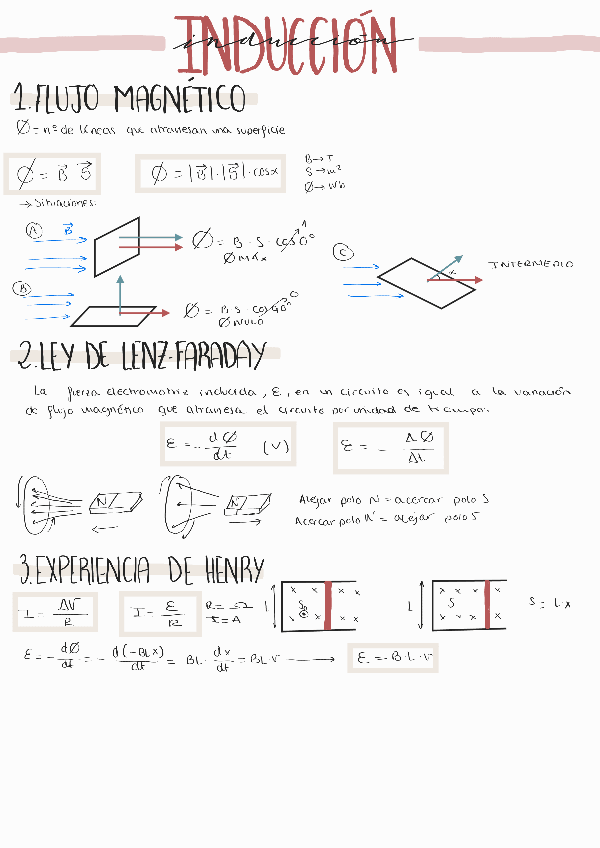 INDUCCIÓN
inducción
1. FLUJO MAGNÉTICO
Ø = nº de líneas que atraviesan una superficie
Ø = B⃗ S⃗
Ø = |B⃗| · |S⃗| · cosα
B → T
S → m²
Ø → Wb
→ Situaciones:
A B⃗
Ø = B · S · cos 0° 1
Ø MÁX
B
Ø = B · S · cos 90° 0
Ø NULO
C
α
INTERMEDIO
2. LEY DE LENZ-FARADAY
La fuerza electromotriz inducida, ε, en un circuito es igual a la variación
de flujo magnético que atraviesa el circuito por unidad de tiempo.
ε = - dØ/dt (V)
ε = - ΔØ/Δt
N
N
Alejar polo N = acercar polo S
Acercar polo N = alejar polo S
3. EXPERIENCIA DE HENRY
I = ΔV/R
I = ε/R
R = Ω
I = A
l
x x x x
S
x x
L
x x x x
S
x x x
S = L·x
ε = - dØ/dt = - d(-BLx)/dt = BL · dx/dt = BL·v → ε = -B·L·v